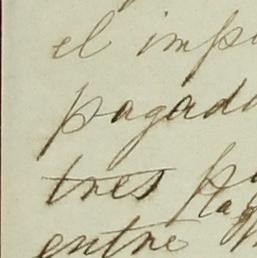 el imp
pagad
tres p
entre